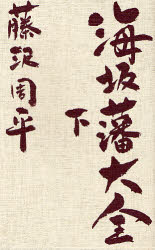 海坂藩大全
下
藤沢周平